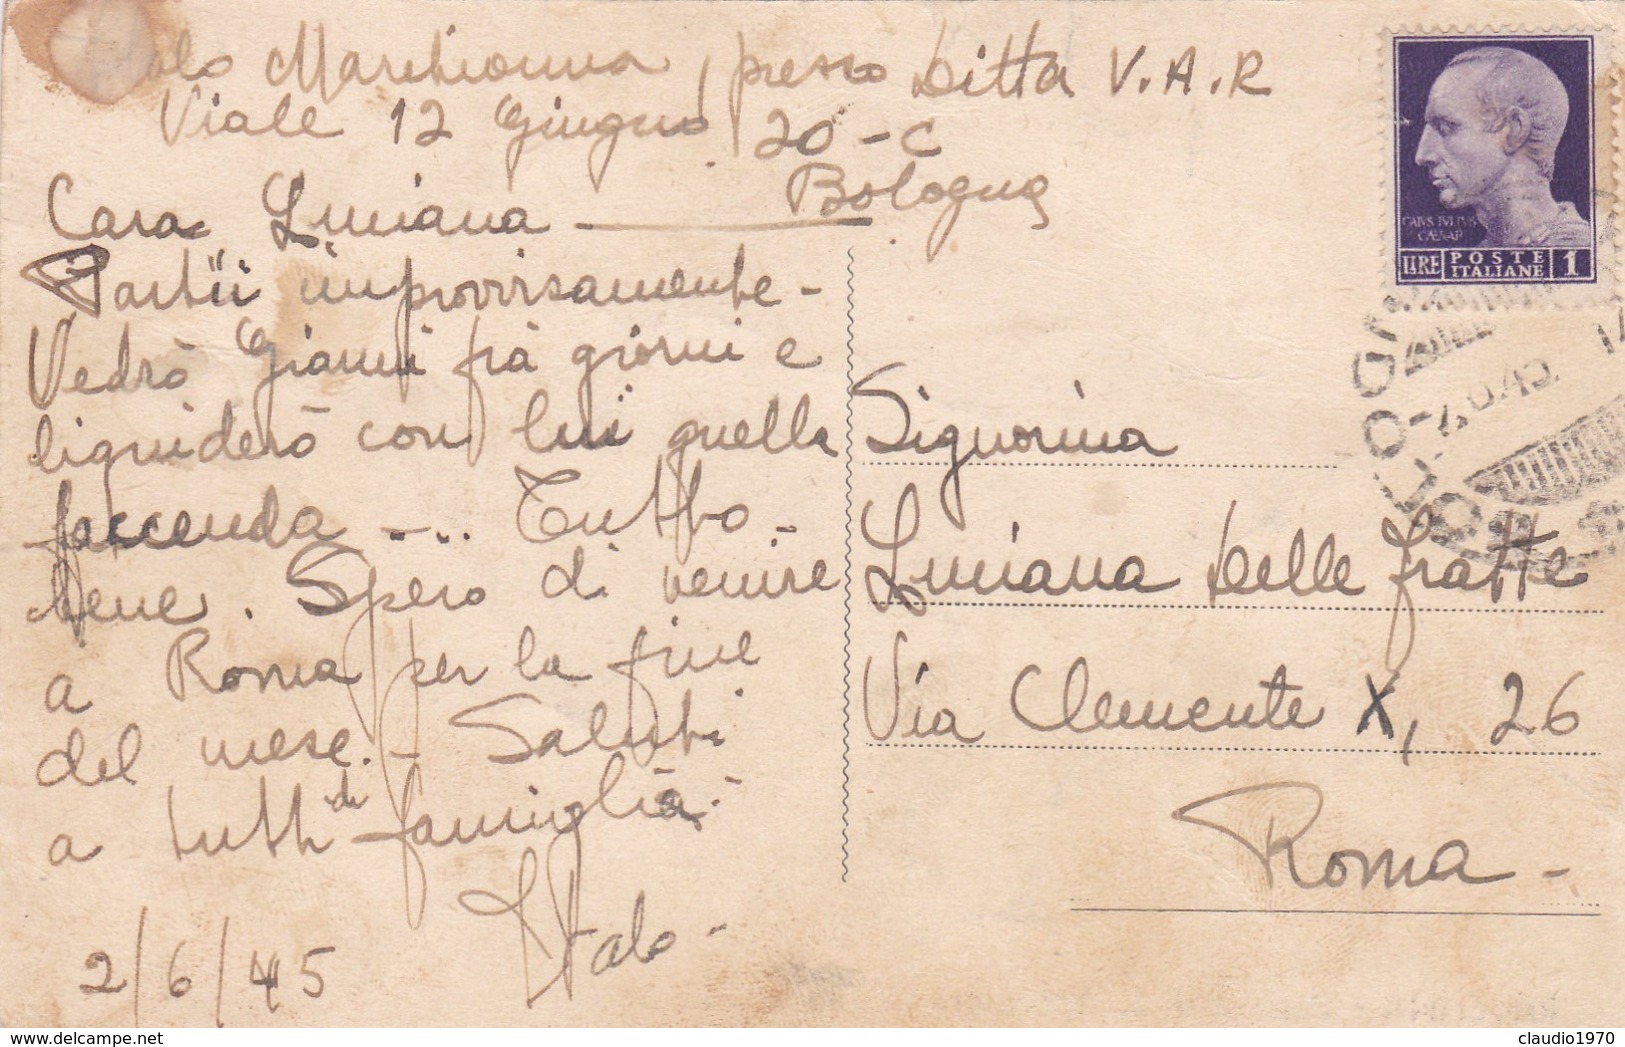 Italo Marchionna, presso Ditta V.A.R
Viale 12 Giugno 20-C
Bologna
Cara Luciana
Partii improvvisamente -
Vedrò Gianni frà giorni e
liquiderò con lui quella
faccenda -... Tutto
bene. Spero di venire
a Roma per la fine
del mese. - Saluti
a tutti di famiglia.
Italo -
2/6/45
CAIVS IVLIVS
CAESAR
LIRE POSTE ITALIANE 1
BOLOGN
Signorina
Luciana Delle Fratte
Via Clemente X, 26
Roma -
delcampe.net
claudio1970